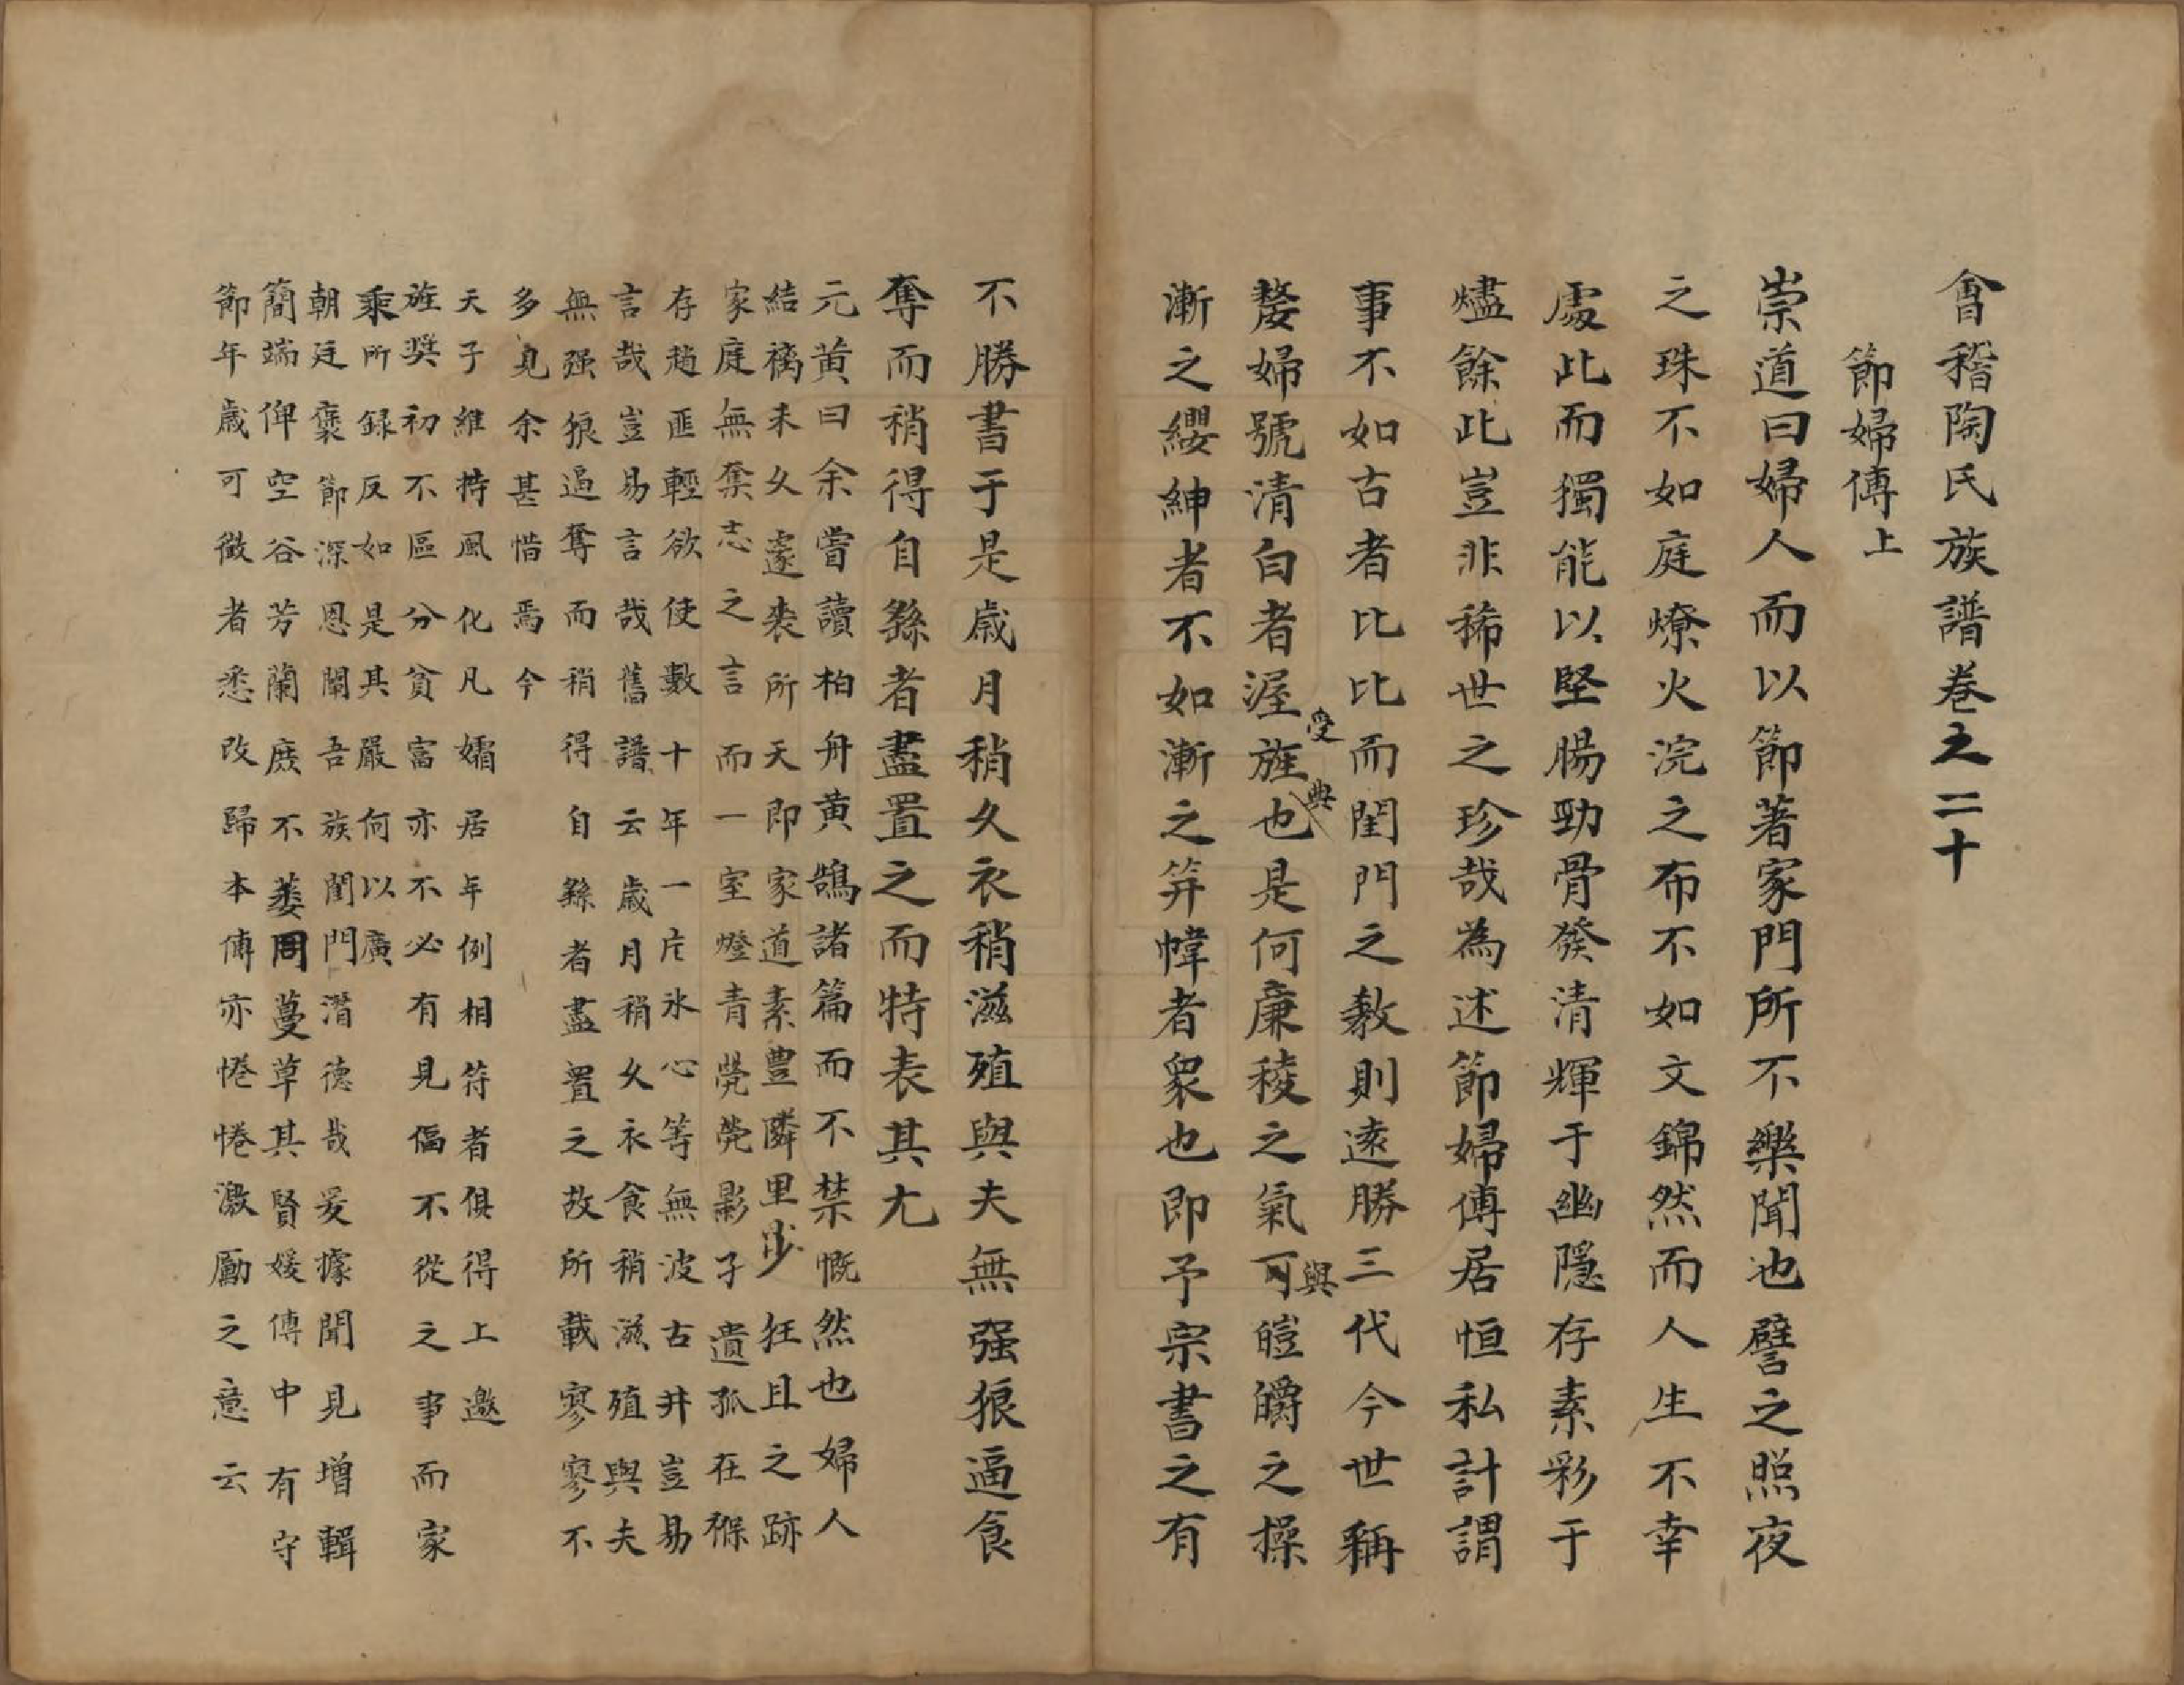 會稽陶氏族譜卷之二十
節婦傳上
崇道曰婦人而以節著家門所不樂聞也譬之照夜
之珠不如庭燎火浣之布不如文錦然而人生不幸
處此而獨能以堅腸勁骨發清輝于幽隱存素彩于
燼餘此豈非稀世之珍哉為述節婦傳居恒私計謂
事不如古者比比而閨門之敎則遠勝三代今世稱
嫠婦號清白者渥受旌典也是何廉稜之氣與可皚皭之操
漸之纓紳者不如漸之笄幃者衆也即予宗書之有
不勝書于是歲月稍久衣稍滋殖與夫無强狼逼食
奪而稍得自繇者盡置之而特表其尤
元黃曰余嘗讀柏舟黃鵠諸篇而不禁慨然也婦人
結褵未久遽喪所天即家道素豊隣里少狂且之跡
家庭無奪志之言而一室燈青煢煢影孑遺孤在褓
存趙匪輕欲使數十年一片氷心等無波古井豈易
言哉豈易言哉舊譜云歲月稍久衣食稍滋殖與夫
無强狼逼奪而稍得自繇者盡置之故所載寥寥不
多見余甚惜焉今
天子維持風化凡孀居年例相符者俱得上邀
旌奨初不區分貧富亦不必有見偪不從之事而家
乘所録反如是其嚴何以廣
朝廷褒節深恩闡吾族閨門潛德哉爰據聞見增輯
簡端俾空谷芳蘭庶不萎同蔓草其賢媛傳中有守
節年歲可徵者悉改歸本傳亦惓惓激勵之意云